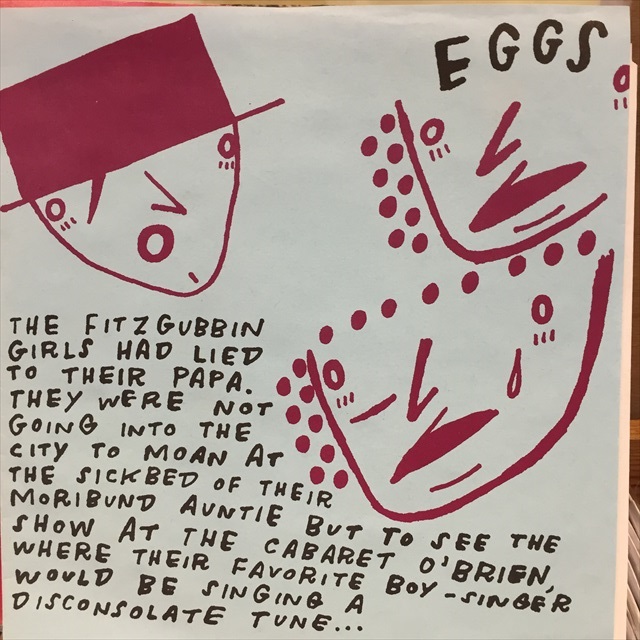 EGGS
THE FITZGUBBIN
GIRLS HAD LIED
TO THEIR PAPA.
THEY WERE NOT
GOING INTO THE
CITY TO MOAN AT
THE SICKBED OF THEIR
MORIBUND AUNTIE BUT TO SEE THE
SHOW AT THE CABARET O'BRIEN,
WHERE THEIR FAVORITE BOY-SINGER
WOULD BE SINGING A
DISCONSOLATE TUNE...